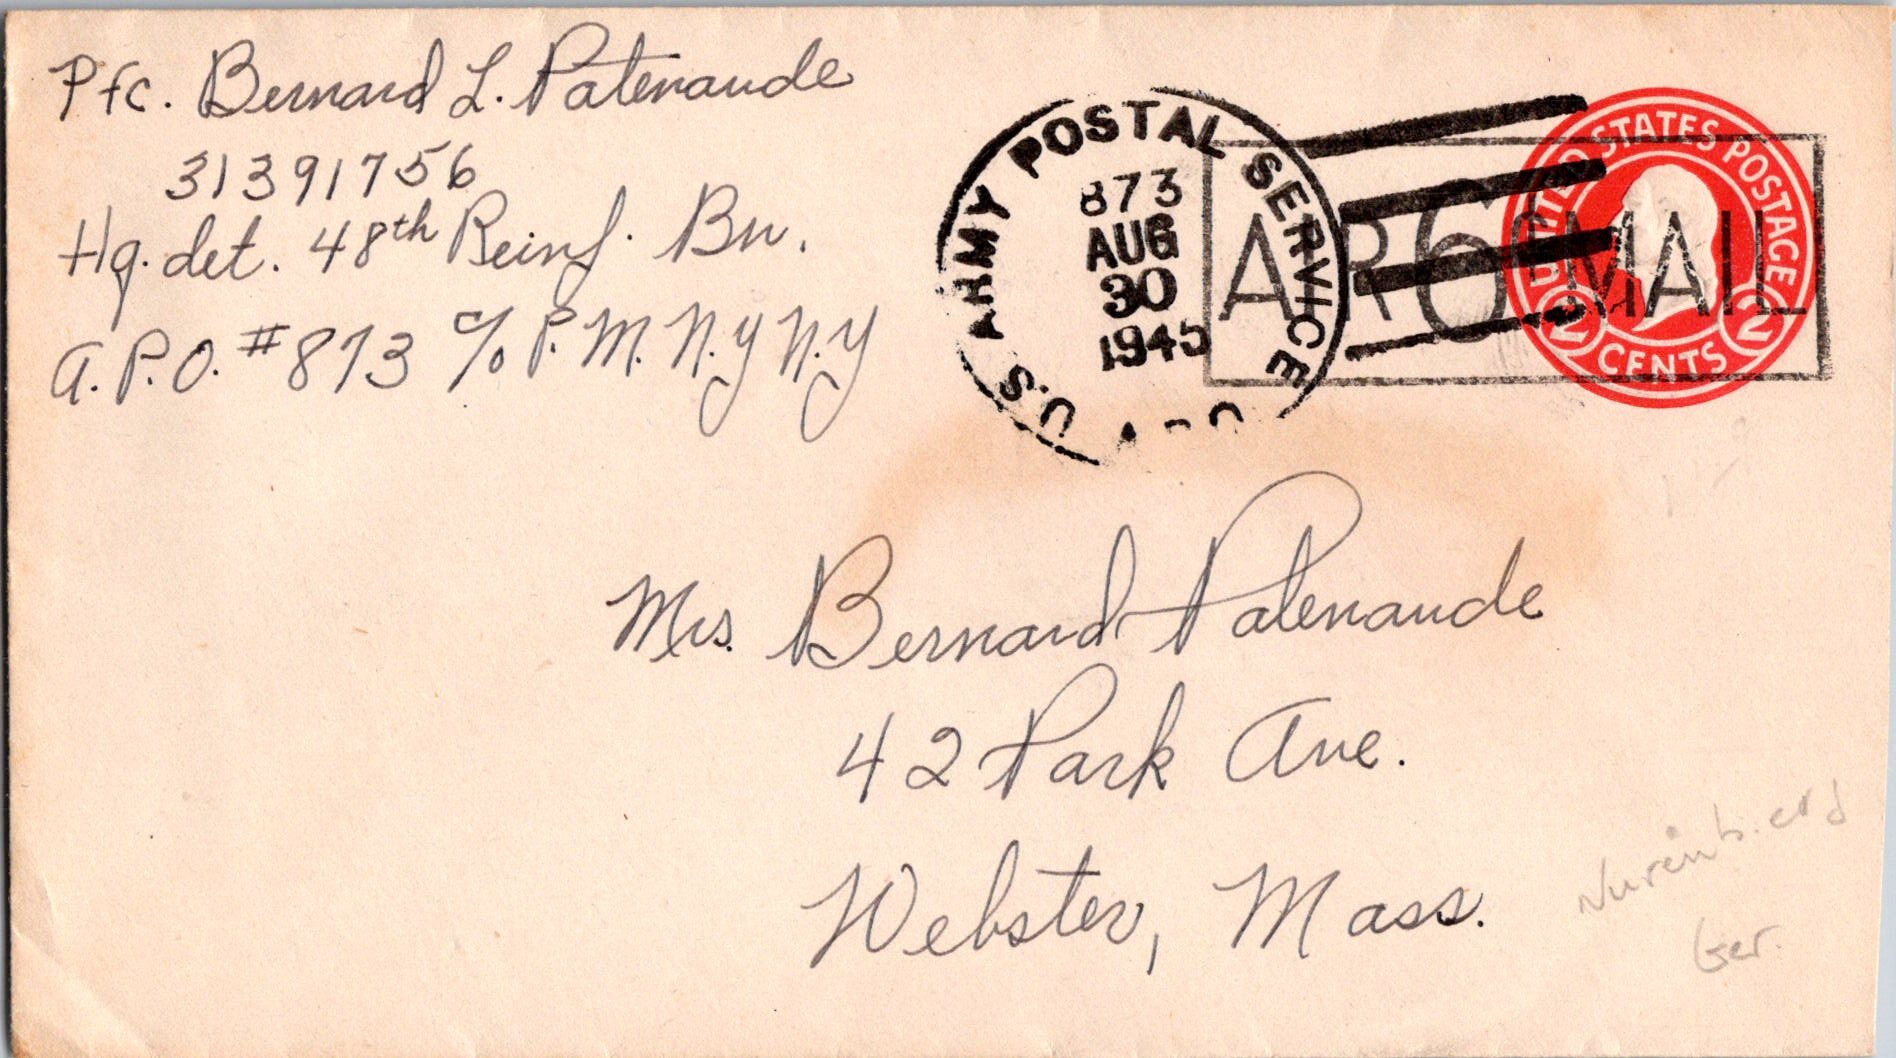 Pfc. Bernard L. Patenaude
31391756
Hq. det. 48th Reinf. Bn.
A.P.O. #873 c/o P.M. N.Y N.Y
U.S. ARMY POSTAL SERVICE
873
AUG
30
1945
AIR 6¢ MAIL
UNITED STATES POSTAGE
2 CENTS 2
Mrs. Bernard Patenaude
42 Park Ave.
Webster, Mass.
Ger.